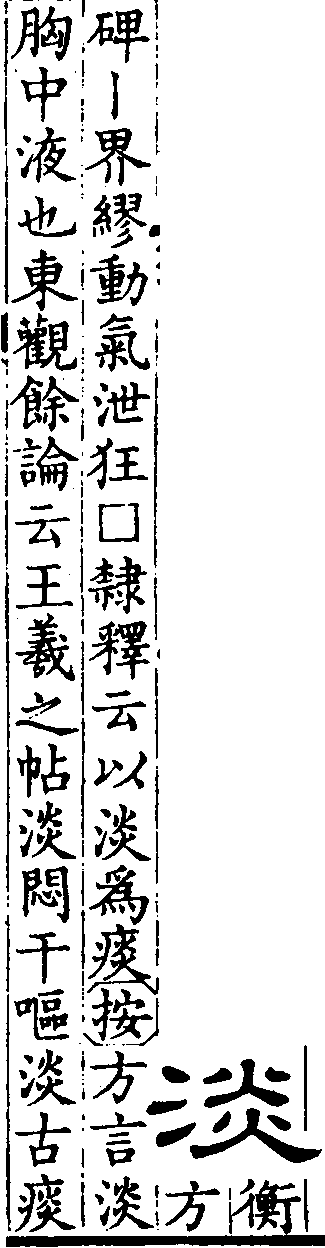 淡
衡
方
碑丨界繆動氣泄狂□隸釋云以淡爲痰按方言淡
胸中液也東觀餘論云王羲之帖淡悶干嘔淡古痰